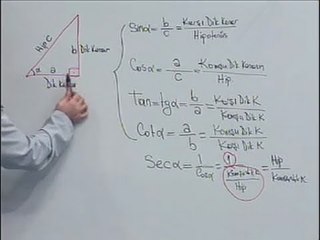 Hip C
b Dik Kenar
α a
Dik Kenar
Sinα = b/c = Karşı Dik Kenar / Hipotenüs
Cosα = a/c = Komşu Dik Kenarın / Hip.
Tanα = tgα = b/a = Karşı Dik K / Komşu Dik K
Cotα = a/b = Komşu Dik K / Karşı Dik K
Secα = 1/Cosα = 1 / Komşu Dik K / Hip = Hip / Komşu Dik K